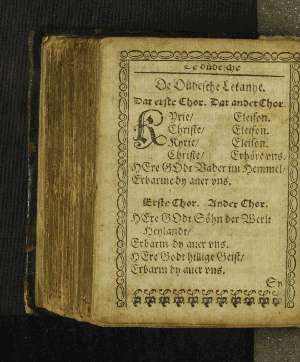 De düdesche
De Düdesche Letanye.
Dat erste Chor. Dat ander Chor.
KYrie/ Eleison.
Christe/ Eleison.
Kyrie/ Eleison.
Christe/ Erhöre vns.
HEre GOdt Vader im Hemmel/
Erbarme dy auer vns.
Erste Chor. Ander Chor.
HEre GOdt Söhn der Werlt
Heylandt/
Erbarm dy auer vns.
HEre Godt hillige Geist/
Erbarm dy auer vns.
Sy